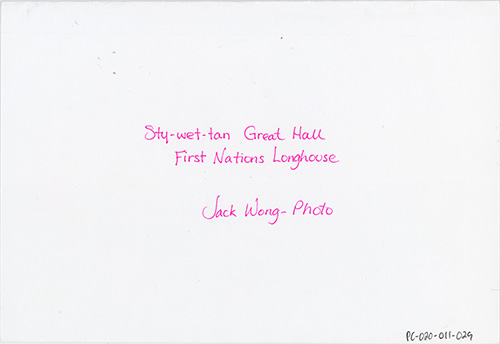 Sty-wet-tan Great Hall
First Nations Longhouse
Jack Wong-Photo
PC-020-011-029